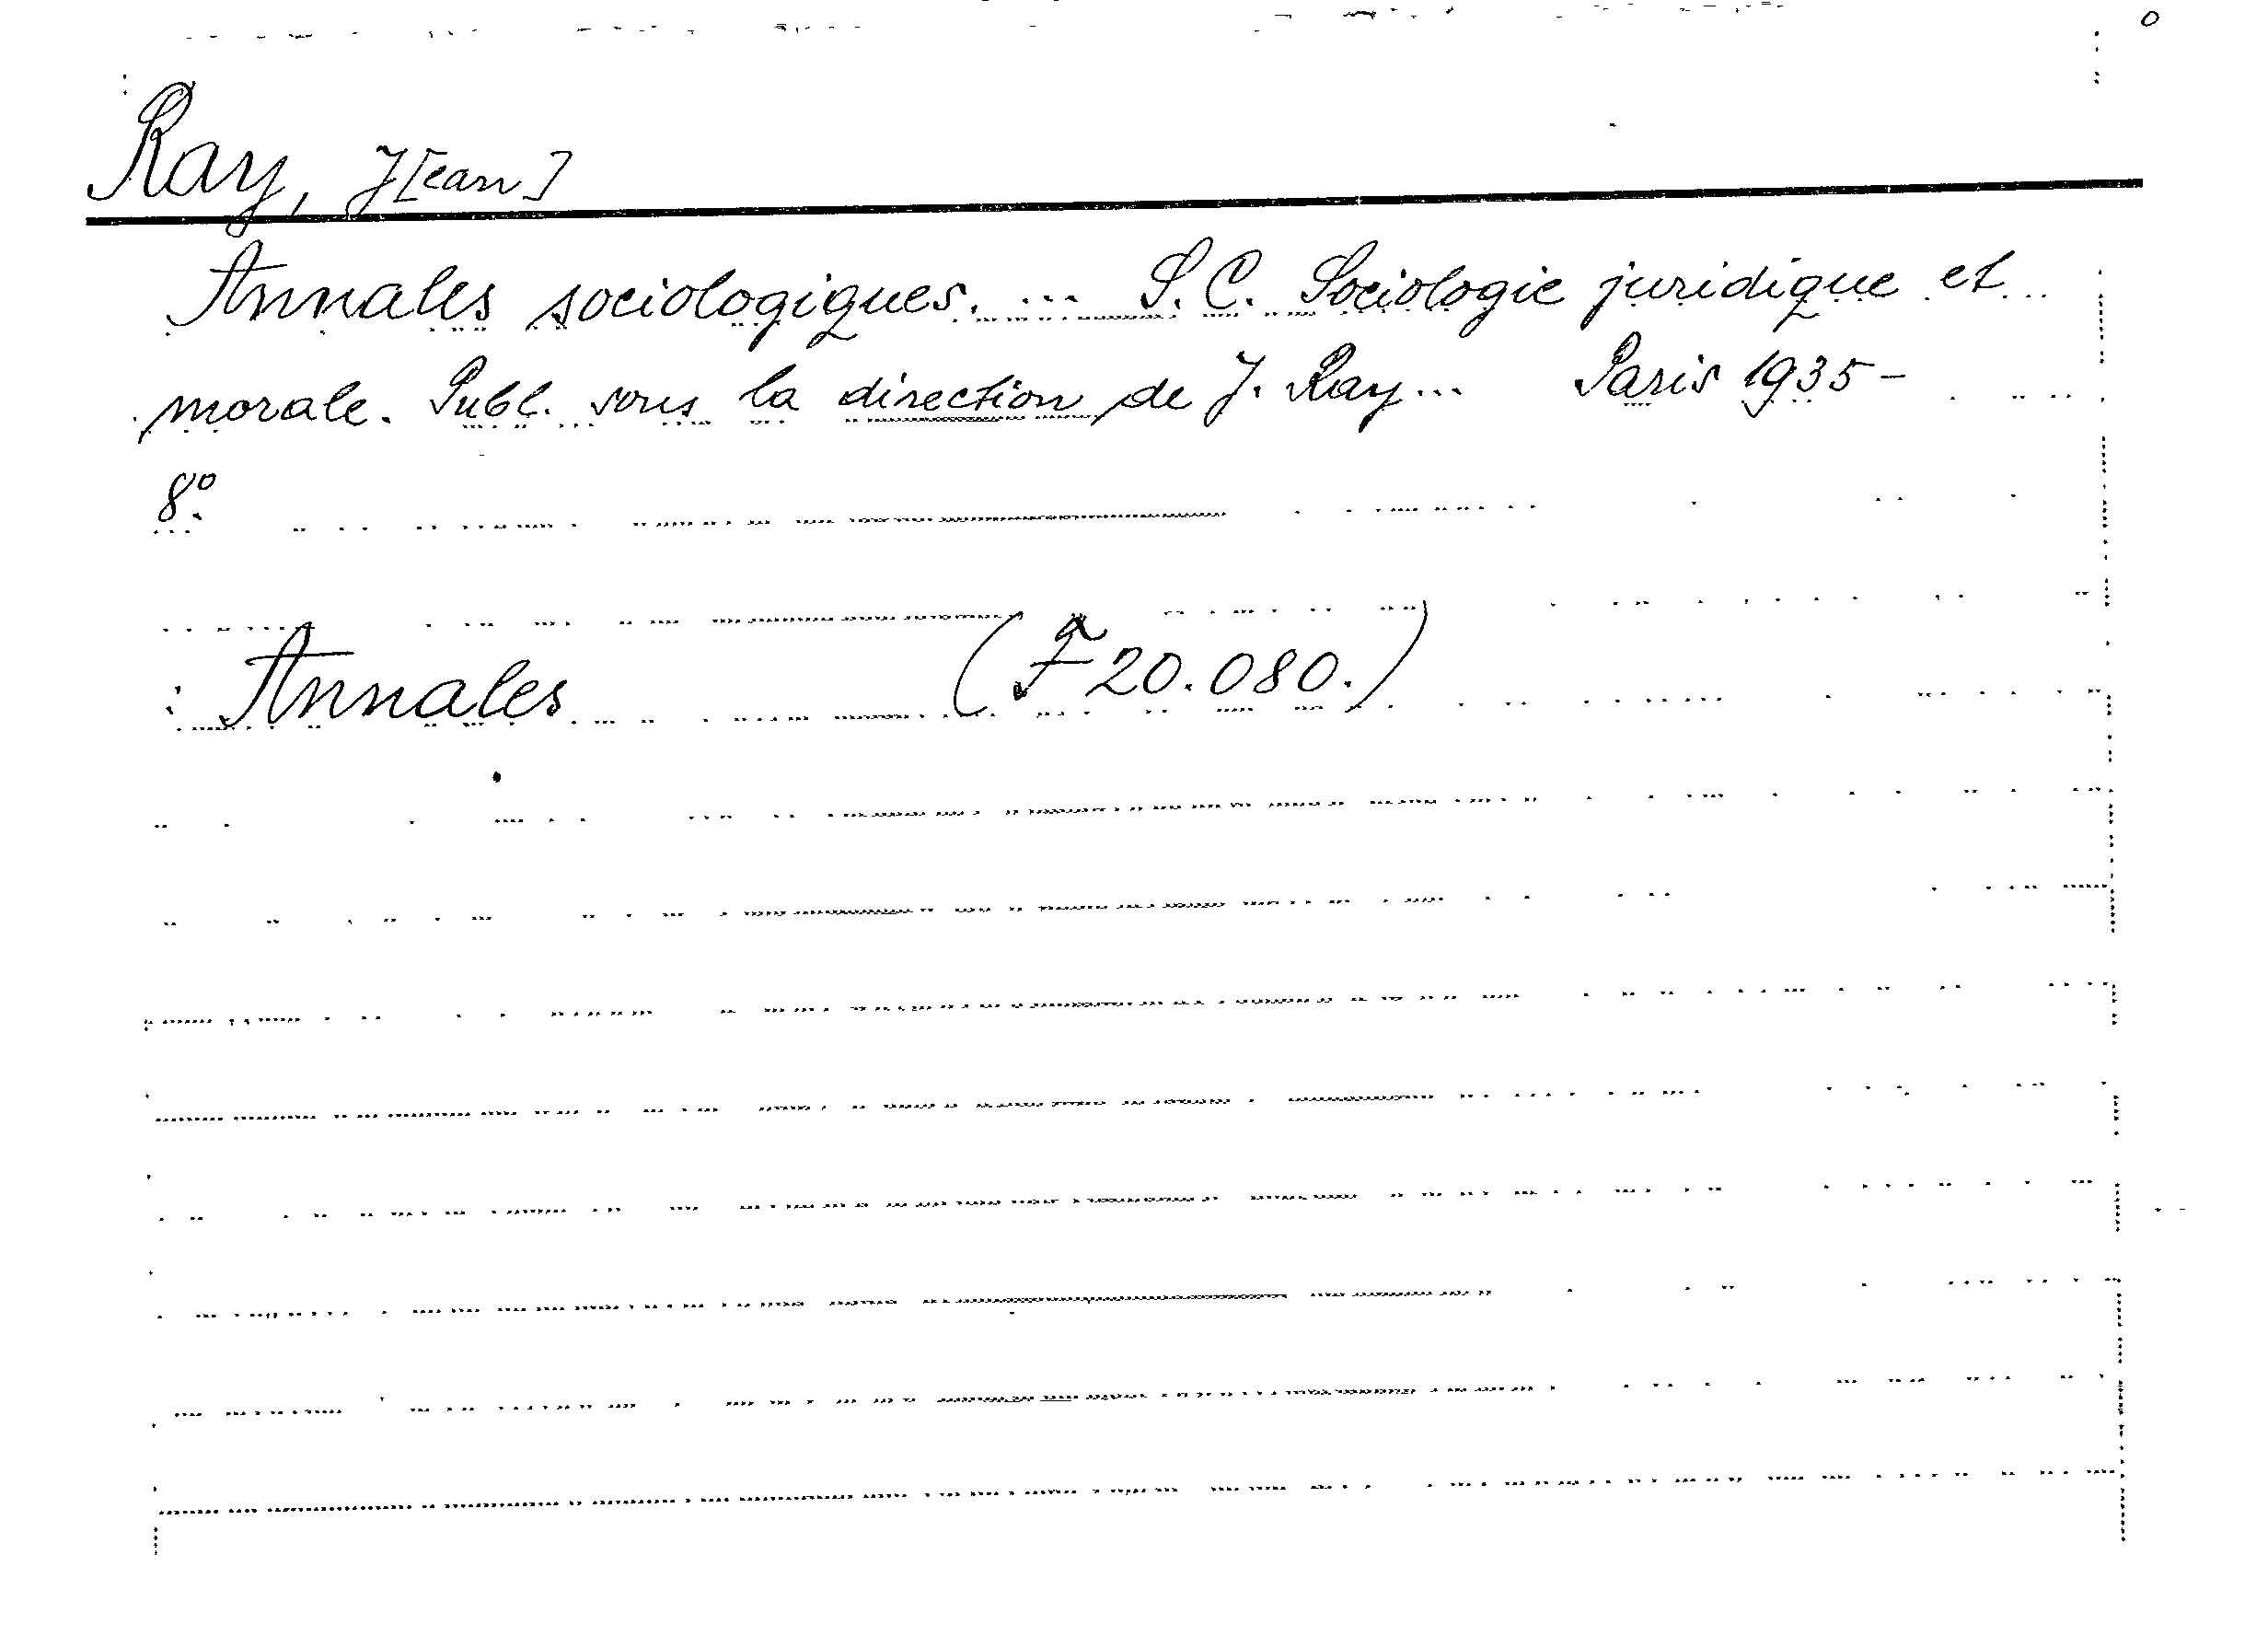 Ray, J[ean]
Annales sociologiques. ... S. C. Sociologie juridique et
morale. Publ. sous la direction de J. Ray... Paris 1935-
8º.
Annales (F 20.080.)